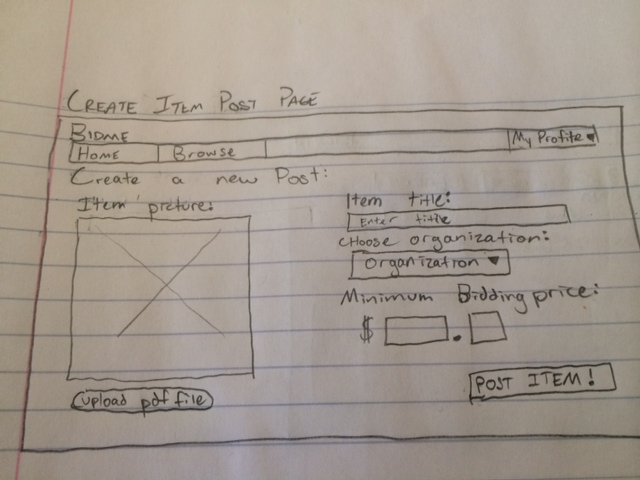 CREATE ITEM POST PAGE
BIDME
HOME Browse My Profile
Create a new Post:
Item picture:
Item title:
Enter title
CHoose organization:
Organization
Minimum Bidding price:
$ .
upload pdf file
POST ITEM!